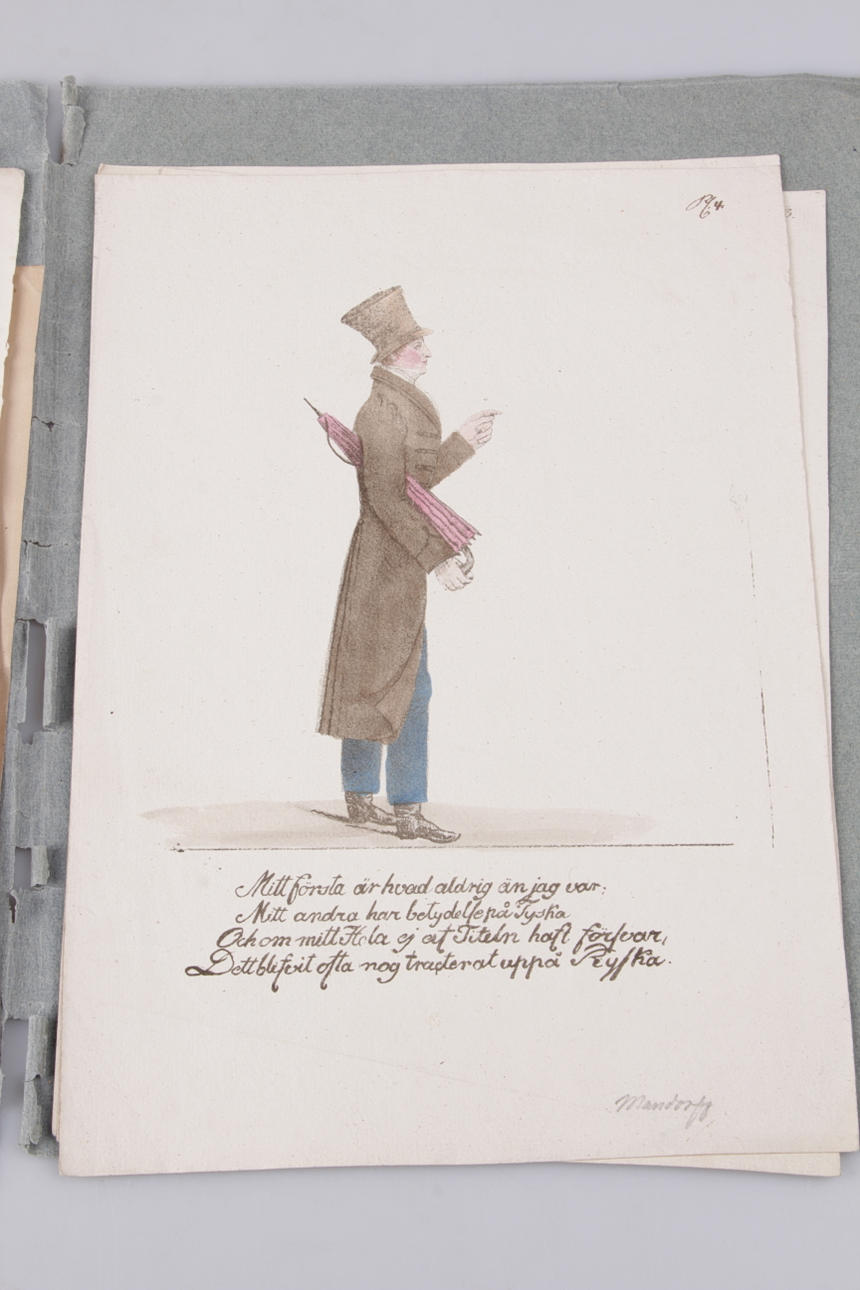 Pl. 4.
3.
Mitt första är hvad aldrig än jag var;
Mitt andra har betydelse på Tyska
Och om mitt Hela ej af Titeln haft försvar,
Dett blifvit ofta nog tracterat uppå Ryska.
Mandorff